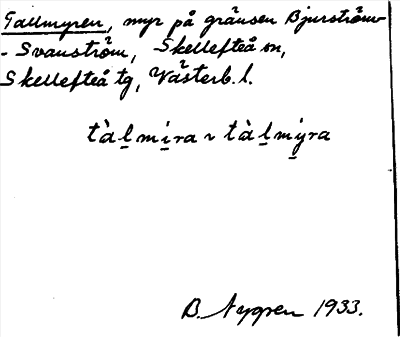 Tallmyren, myr på gränsen Bjurström-
- Svanström, Skellefteå sn,
Skellefteå tg, Västerb. l.
tàl̲mi̲ra ~ tàl̲my̲ra
B. Nygren 1933.